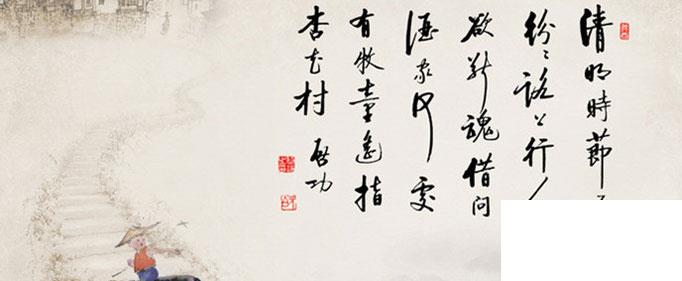 清明時節
紛〻路上行人
欲斷魂借問
酒家何處
有牧童遙指
杏花村
啟功